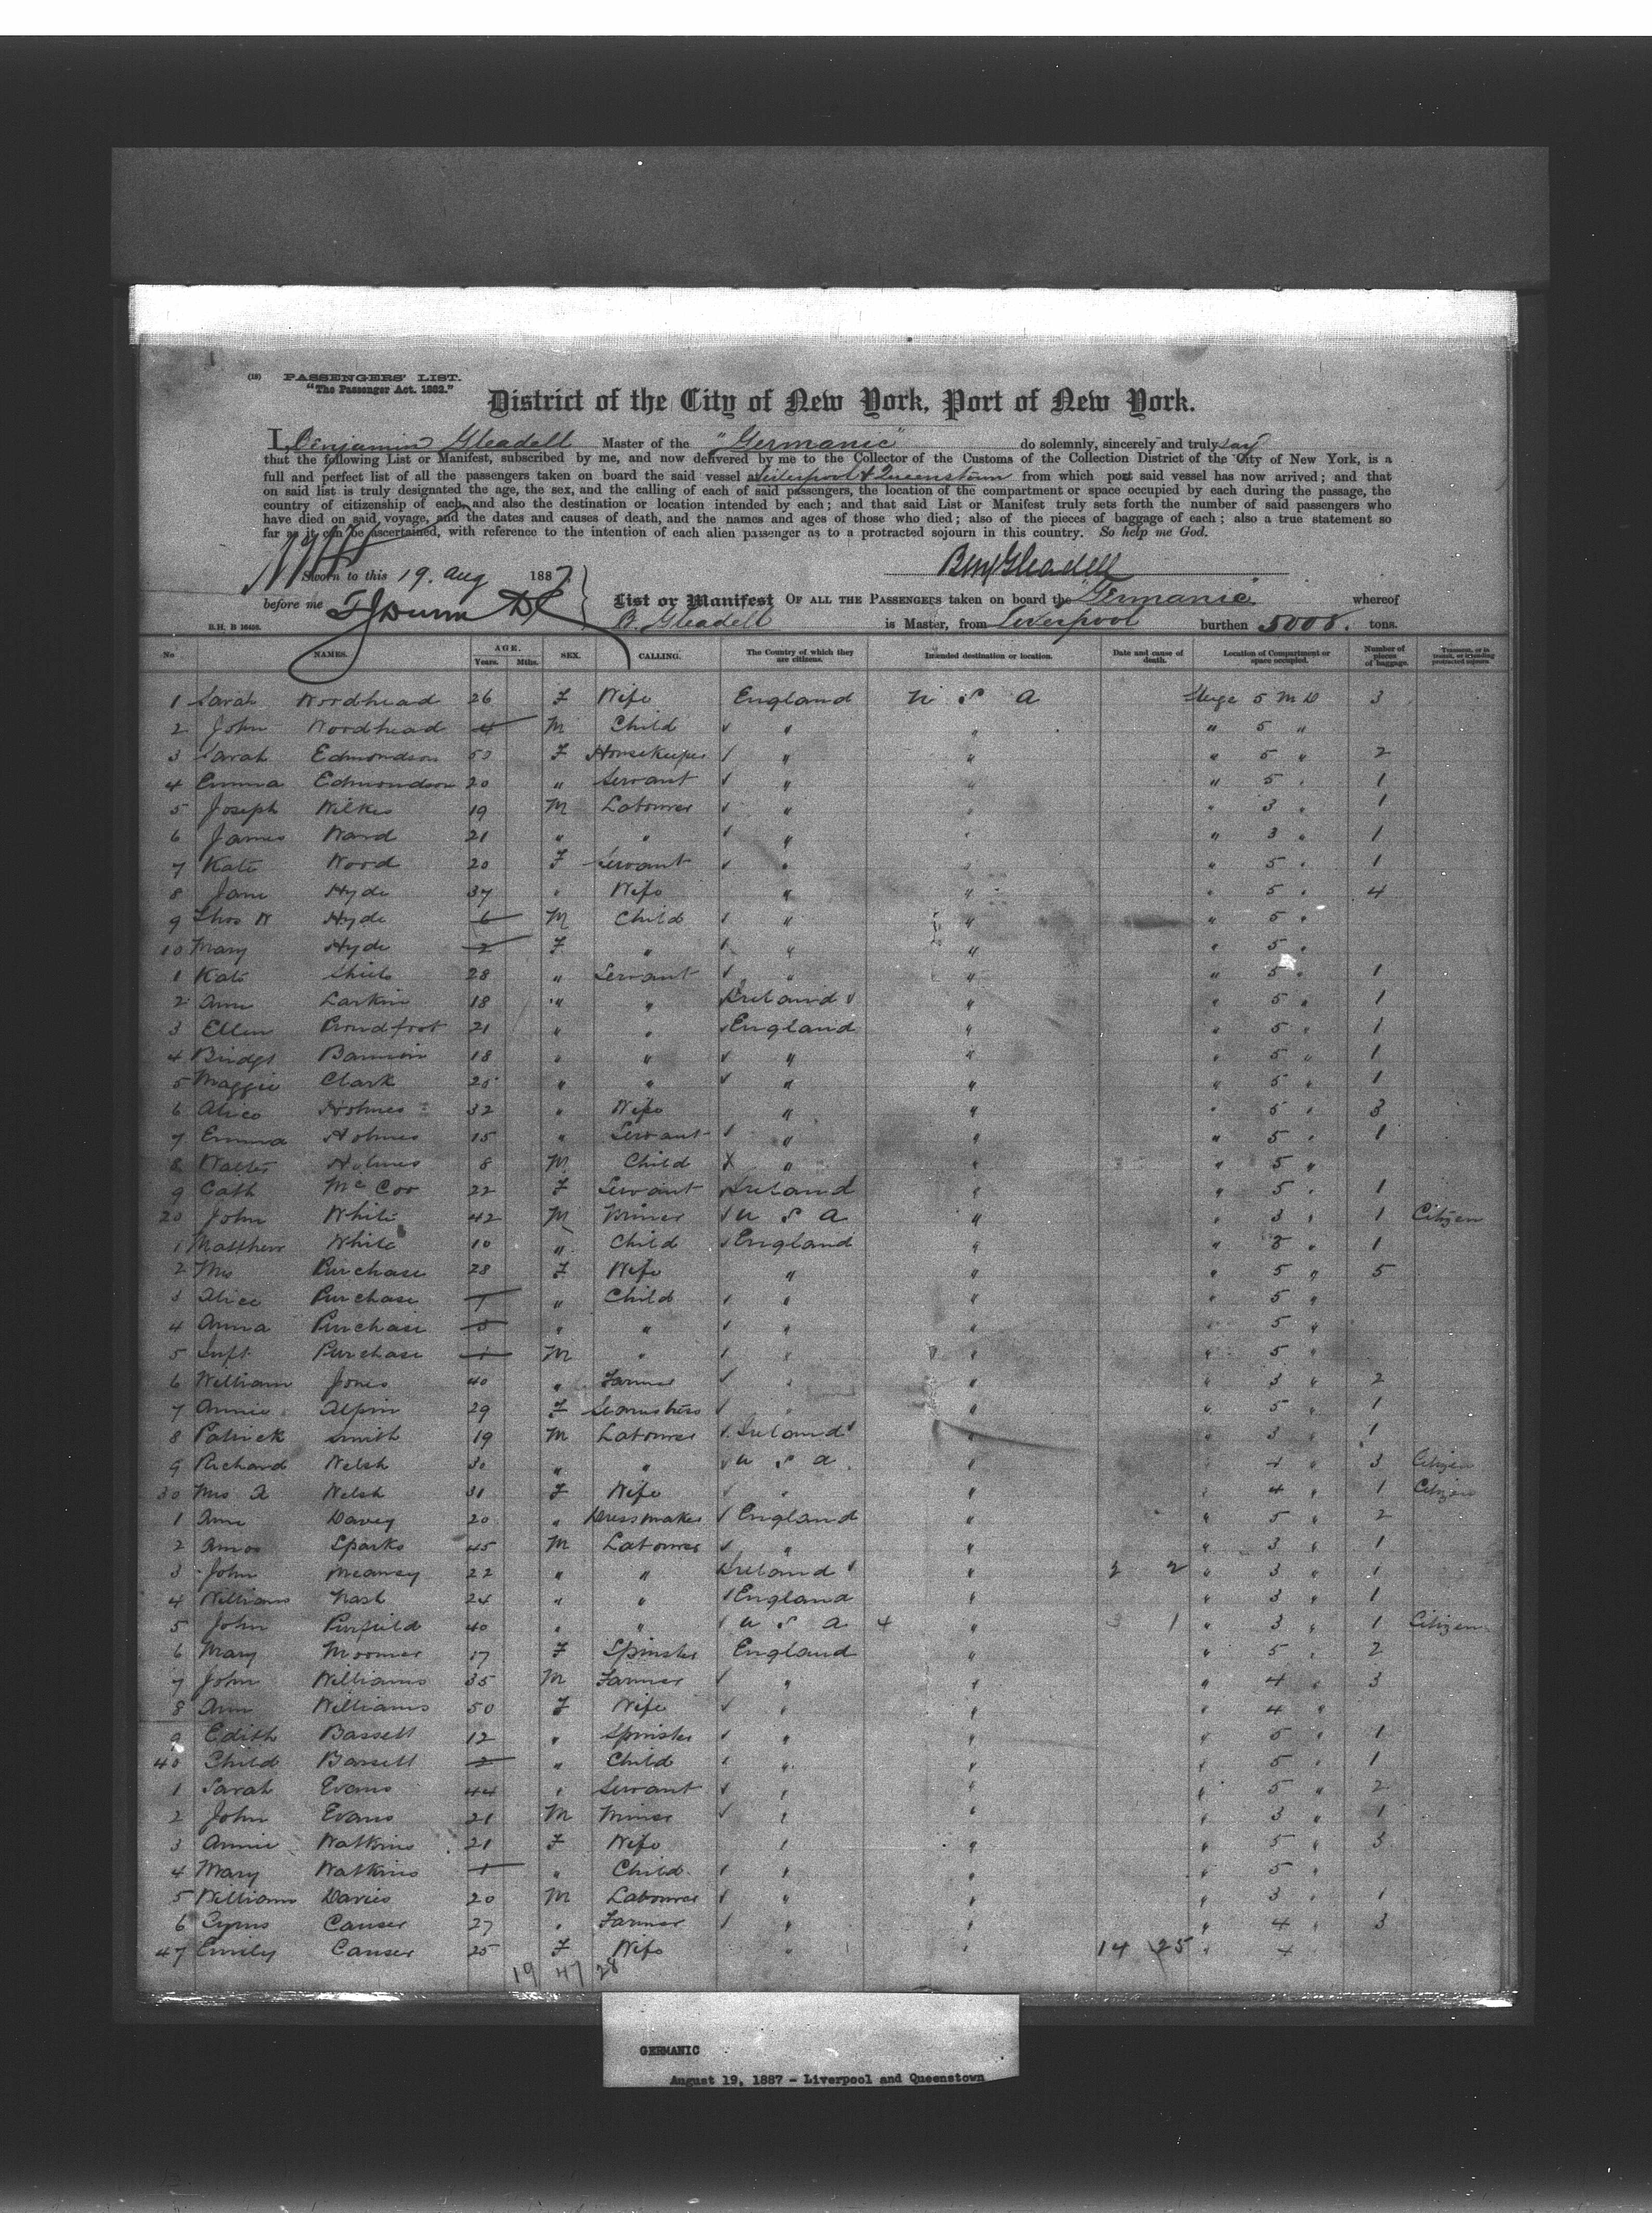 (18) PASSENGERS' LIST.
"The Passenger Act. 1882."
District of the City of New York, Port of New York.
I Benjamin Gleadell Master of the "Germanic" do solemnly, sincerely and truly say
that the following List or Manifest, subscribed by me, and now delivered by me to the Collector of the Customs of the Collection District of the City of New York, is a
full and perfect list of all the passengers taken on board the said vessel at Liverpool & Queenstown from which port said vessel has now arrived; and that
on said list is truly designated the age, the sex, and the calling of each of said passengers, the location of the compartment or space occupied by each during the passage, the
country of citizenship of each, and also the destination or location intended by each; and that said List or Manifest truly sets forth the number of said passengers who
have died on said voyage, and the dates and causes of death, and the names and ages of those who died; also of the pieces of baggage of each; also a true statement so
far as it can be ascertained, with reference to the intention of each alien passenger as to a protracted sojourn in this country. So help me God.
Benj Gleadell
Sworn to this 19. Aug 1887.
before me T J Dunn List or Manifest OF ALL THE PASSENGERS taken on board the "Germanic" whereof
B.H. B 16458. B. Gleadell is Master, from Liverpool burthen 5008. tons.
No NAMES. AGE. Years. Mths. SEX. CALLING. The Country of which they are citizens. Intended destination or location. Date and cause of death. Location of Compartment or space occupied. Number of pieces of baggage. Transient, or in transit, or intending protracted sojourn
1 Sarah Woodhead 26 F Wife England U S A Stege 5 M D 3
2 John Woodhead 4 M Child " " " 5 "
3 Sarah Edmondson 50 F Housekeeper " " " 5 " 2
4 Emma Edmondson 20 " Servant " " " 5 " 1
5 Joseph Wilkes 19 M Labourer " " " 3 " 1
6 James Ward 21 " " " " " 3 " 1
7 Kate Wood 20 F Servant " " " 5 " 1
8 Jane Hyde 37 " Wife " " " 5 " 4
9 Thos W Hyde 6 M Child " " " 5 "
10 Mary Hyde 2 F " " " " 5 "
1 Kate Shiels 28 " Servant " " " 5 " 1
2 Ann Larkin 18 " " Ireland " " 5 " 1
3 Ellen Proudfoot 21 " " England " " 5 " 1
4 Bridgt Bannon 18 " " " " " 5 " 1
5 Maggie Clark 25 " " " " " 5 " 1
6 Alice Holmes 32 " Wife " " " 5 " 3
7 Emma Holmes 15 " Servant " " " 5 " 1
8 Walter Holmes 8 M Child " " " 5 "
9 Cath McCoo 22 F Servant Ireland " " 5 " 1
20 John White 42 M Miner U S A " " 3 " 1 Citizen
1 Matthew White 10 " Child England " " 3 " 1
2 Mrs Purchase 28 F Wife " " " 5 " 5
3 Alice Purchase 7 " Child " " " 5 "
4 Anna Purchase 5 " " " " " 5 "
5 Inft Purchase 1 M " " " " 5 "
6 William Jones 40 " Farmer " " " 3 " 2
7 Annie Alpin 29 F Seamstress " " " 5 " 1
8 Patrick Smith 19 M Labourer Ireland " " 3 " 1
9 Richard Welsh 30 " " U S A " " 4 " 3 Citizen
30 Mrs A Welsh 31 F Wife " " " 4 " 1 Citizen
1 Ann Davey 20 " Dressmaker England " " 5 " 2
2 Amos Sparks 45 M Labourer " " " 3 " 1
3 John Meaney 22 " " Ireland " 2 2 " 3 " 1
4 William Nash 24 " " England " " 3 " 1
5 John Purfield 40 " " U S A 4 " 3 1 " 3 " 1 Citizen
6 Mary Moomer 17 F Spinster England " " 5 " 2
7 John Williams 35 M Farmer " " " 4 " 3
8 Ann Williams 50 F Wife " " " 4 "
9 Edith Bassell 12 " Spinster " " " 5 " 1
40 Child Bassell 2 " Child " " " 5 " 1
1 Sarah Evans 44 " Servant " " " 5 " 2
2 John Evans 21 M Miner " " " 3 " 1
3 Annie Watkins 21 F Wife " " " 5 " 3
4 Mary Watkins 1 " Child " " " 5 "
5 William Davies 20 M Labourer " " " 3 " 1
6 Cyrus Causer 27 " Farmer " " " 4 " 3
47 Emily Causer 25 F Wife " " 14 25 " 4
19 47 28
GERMANIC
August 19, 1887 - Liverpool and Queenstown